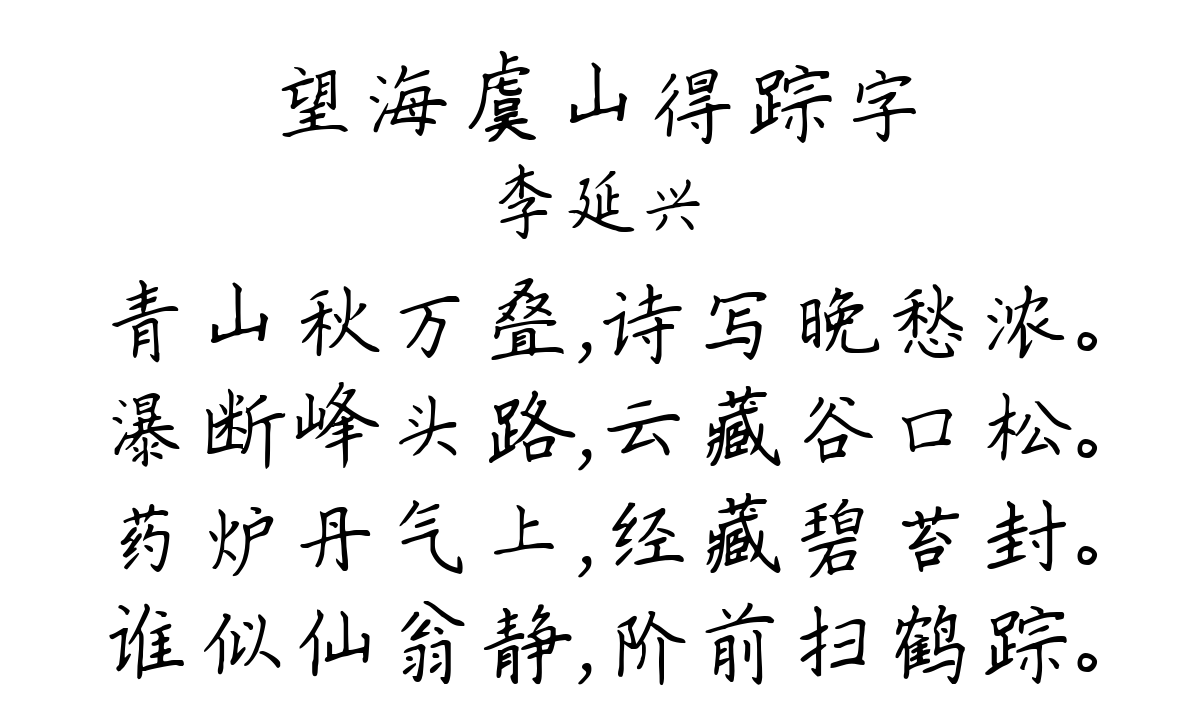 望海虞山得踪字
李延兴
青山秋万叠,诗写晚愁浓。
瀑断峰头路,云藏谷口松。
药炉丹气上,经藏碧苔封。
谁似仙翁静,阶前扫鹤踪。